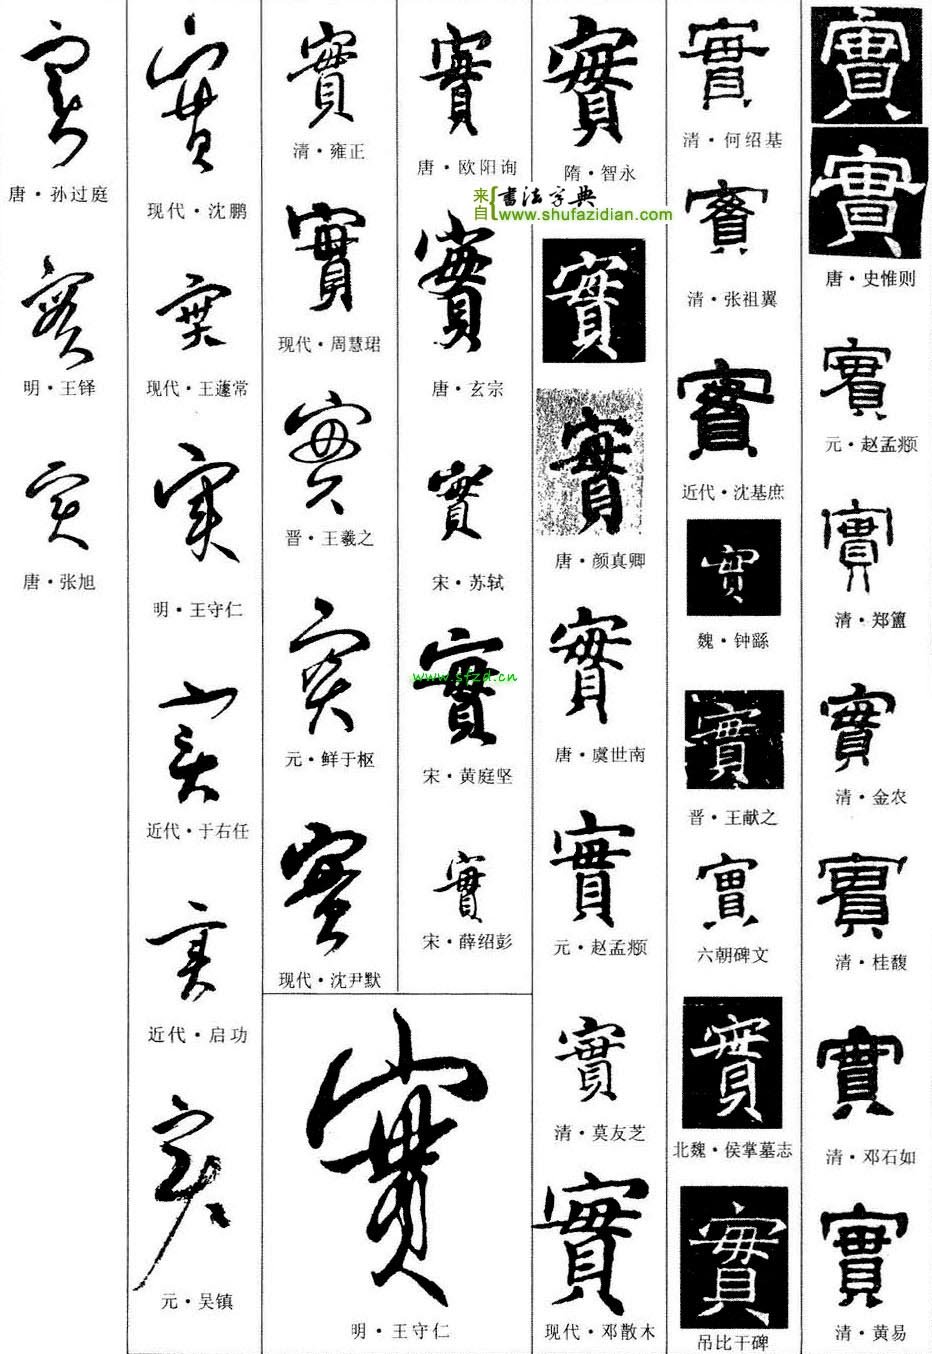 實
實
唐·史惟则
實
元·赵孟頫
實
清·郑簠
實
清·金农
實
清·桂馥
實
清·邓石如
實
清·黄易
實
清·何绍基
實
清·张祖翼
實
近代·沈基庶
實
魏·钟繇
實
晋·王献之
實
六朝碑文
實
北魏·侯掌墓志
實
吊比干碑
實
隋·智永
來自{书法字典
www.shufazidian.com
實
實
唐·颜真卿
實
唐·虞世南
實
元·赵孟頫
實
清·莫友芝
實
现代·邓散木
實
唐·欧阳询
實
唐·玄宗
實
宋·苏轼
實
宋·黄庭坚
www.sfzd.cn
實
宋·薛绍彭
實
清·雍正
實
现代·周慧珺
實
晋·王羲之
實
元·鲜于枢
實
现代·沈尹默
實
明·王守仁
實
现代·沈鹏
實
现代·王蘧常
實
明·王守仁
實
近代·于右任
實
近代·启功
實
元·吴镇
實
唐·孙过庭
實
明·王铎
實
唐·张旭